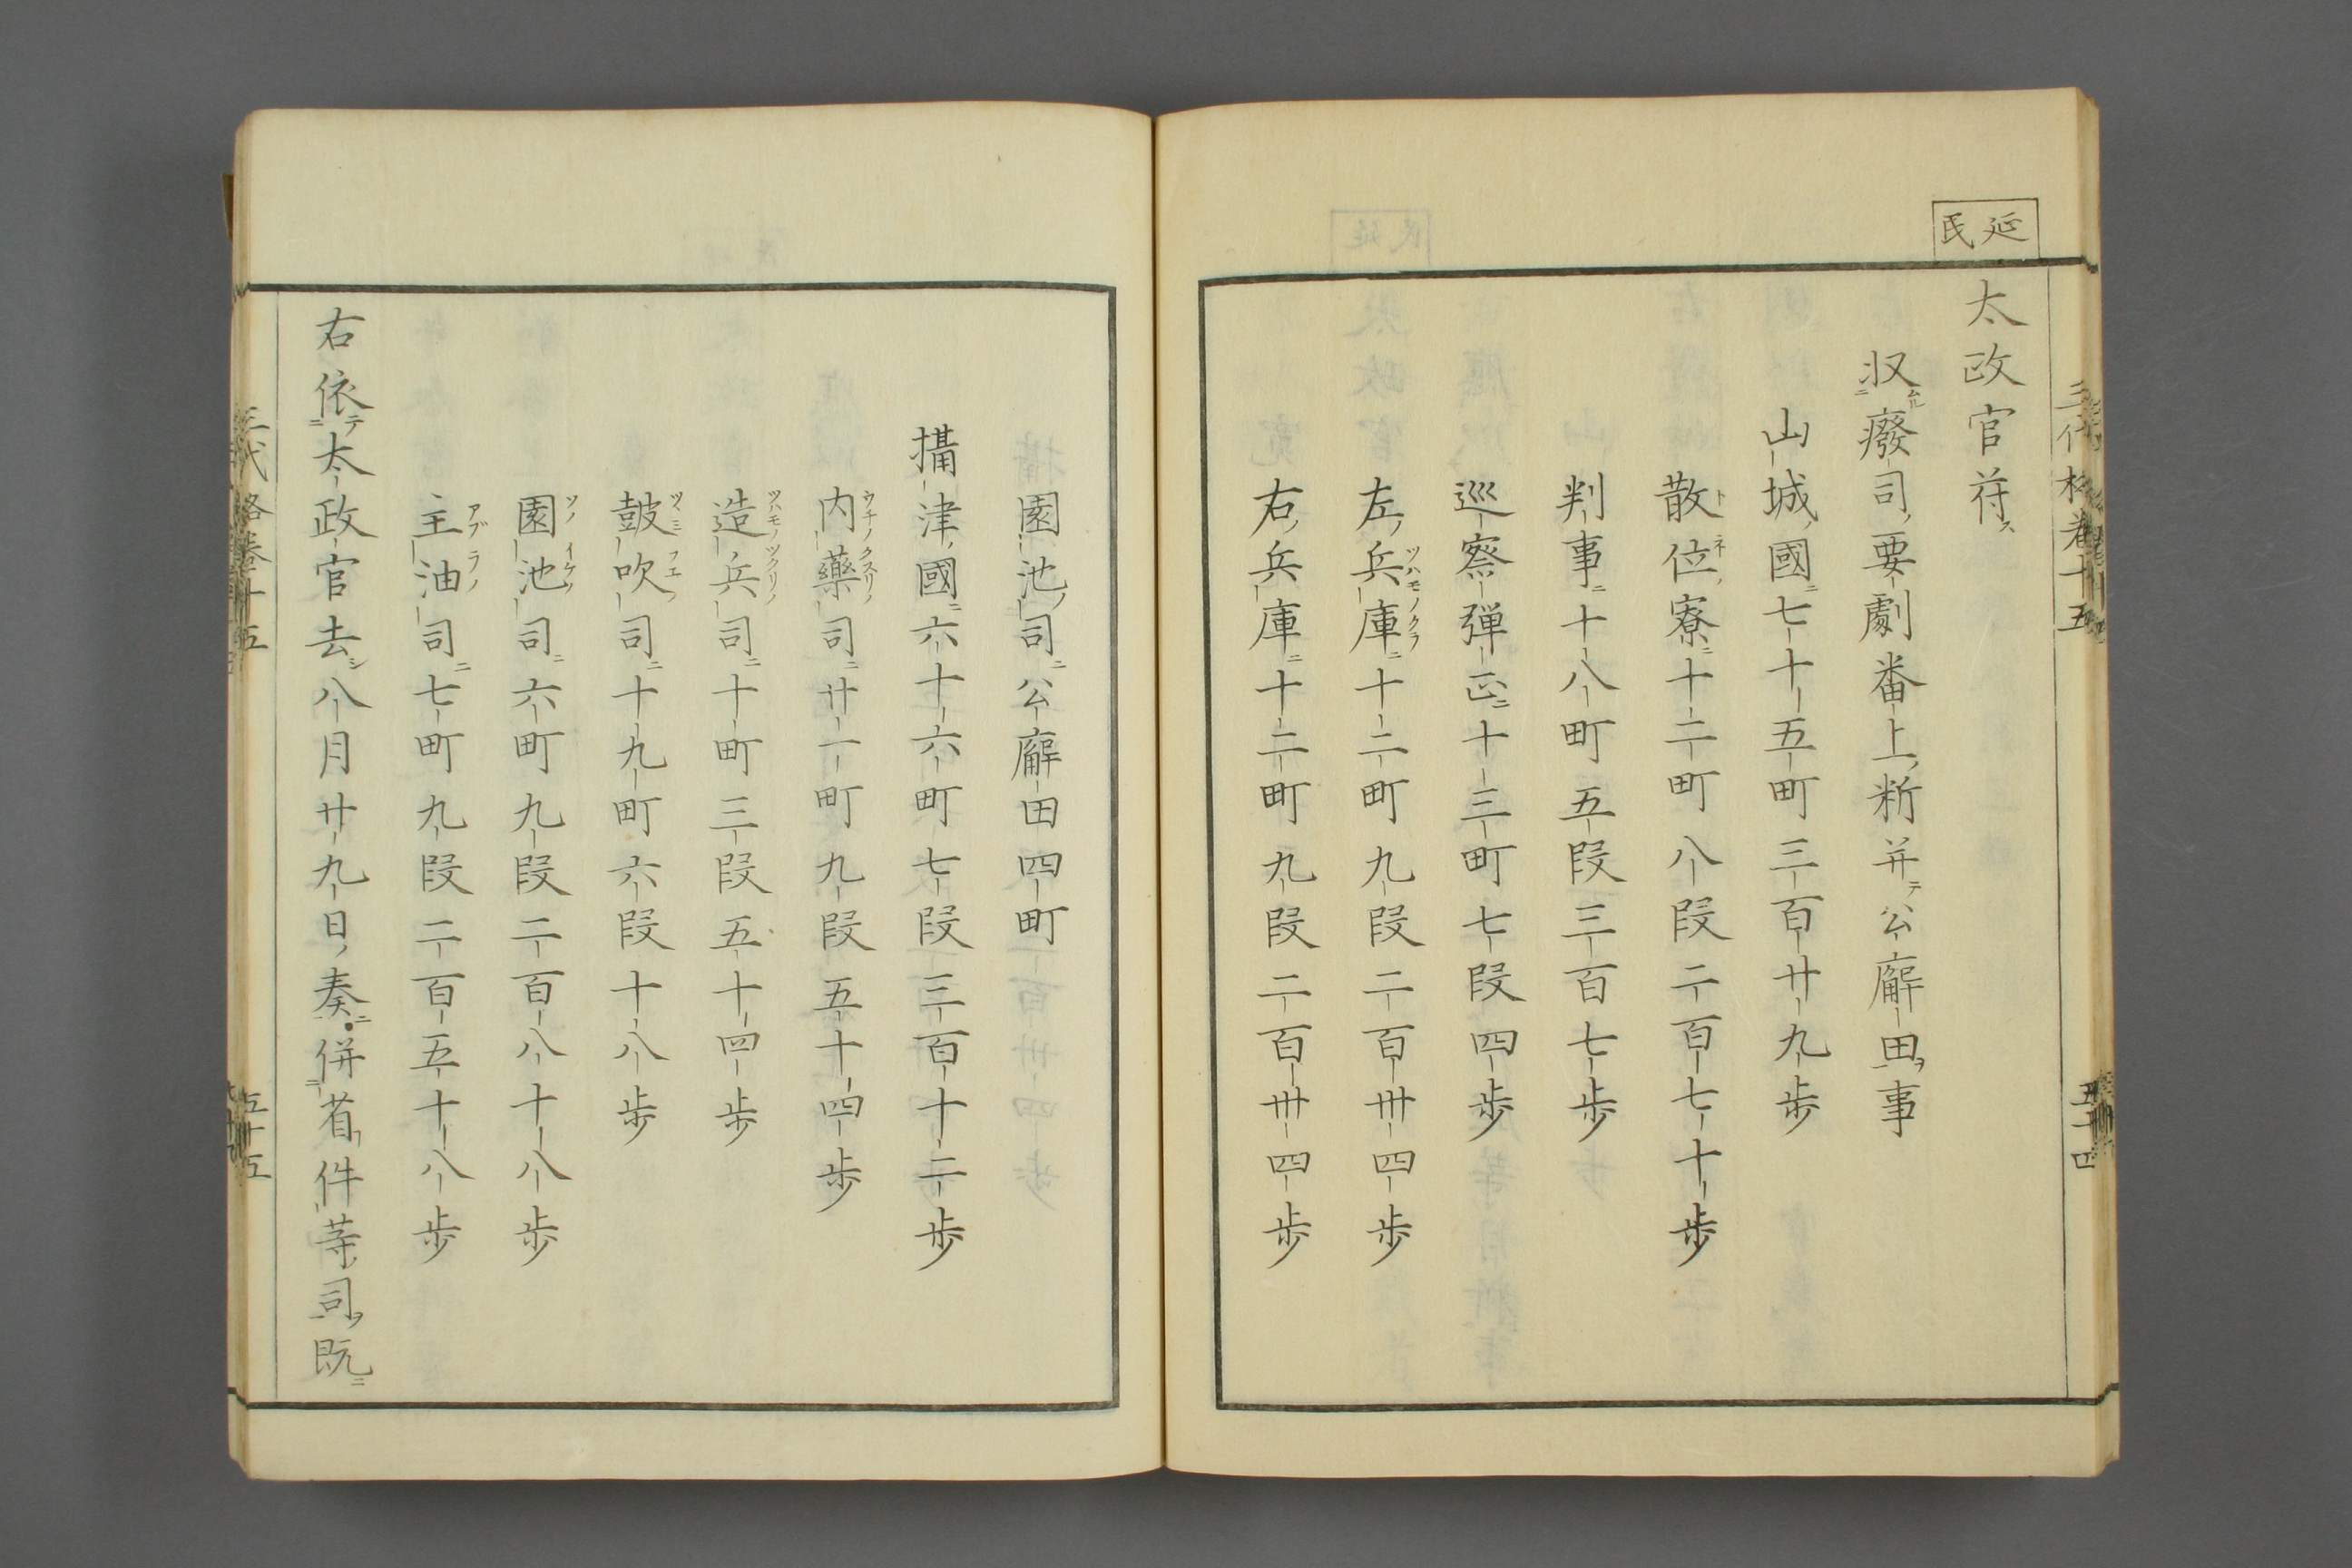 延民
太政官符
収癈司要劇番上䉼并公廨田事
山城國七十五町三百廿九歩
散位寮十二町八段二百七十歩
判事十八町五段三百七歩
巡察弾正十三町七段四歩
左兵庫十二町九段二百卅四歩
右兵庫十二町九段二百卅四歩
園池司公廨田四町
攝津國六十六町七段三百十二歩
内藥司廿一町九段五十四歩
造兵司十町三段五十四歩
鼓吹司十九町六段十八歩
園池司六町九段二百八十八歩
主油司七町九段二百五十八歩
右依太政官去八月廿九日奏併省件等司既
三代格卷十五
五十五